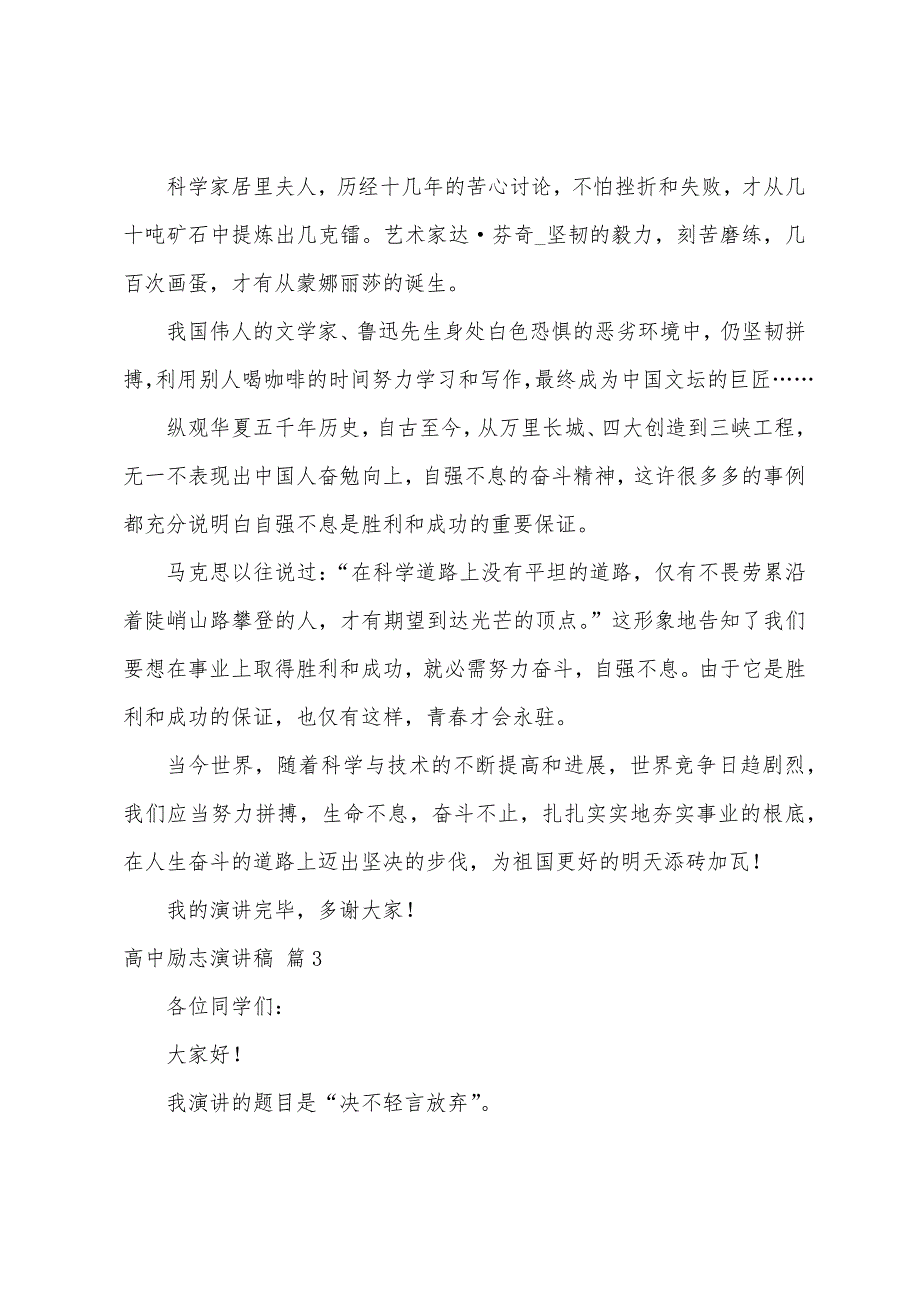 科学家居里夫人，历经十几年的苦心讨论，不怕挫折和失败，才从几
十吨矿石中提炼出几克镭。艺术家达·芬奇_坚韧的毅力，刻苦磨练，几
百次画蛋，才有从蒙娜丽莎的诞生。
我国伟人的文学家、鲁迅先生身处白色恐惧的恶劣环境中，仍坚韧拼
搏，利用别人喝咖啡的时间努力学习和写作，最终成为中国文坛的巨匠……
纵观华夏五千年历史，自古至今，从万里长城、四大创造到三峡工程，
无一不表现出中国人奋勉向上，自强不息的奋斗精神，这许很多多的事例
都充分说明白自强不息是胜利和成功的重要保证。
马克思以往说过：“在科学道路上没有平坦的道路，仅有不畏劳累沿
着陡峭山路攀登的人，才有期望到达光芒的顶点。”这形象地告知了我们
要想在事业上取得胜利和成功，就必需努力奋斗，自强不息。由于它是胜
利和成功的保证，也仅有这样，青春才会永驻。
当今世界，随着科学与技术的不断提高和进展，世界竞争日趋剧烈，
我们应当努力拼搏，生命不息，奋斗不止，扎扎实实地夯实事业的根底，
在人生奋斗的道路上迈出坚决的步伐，为祖国更好的明天添砖加瓦！
我的演讲完毕，多谢大家！
高中励志演讲稿 篇3
各位同学们：
大家好！
我演讲的题目是“决不轻言放弃”。